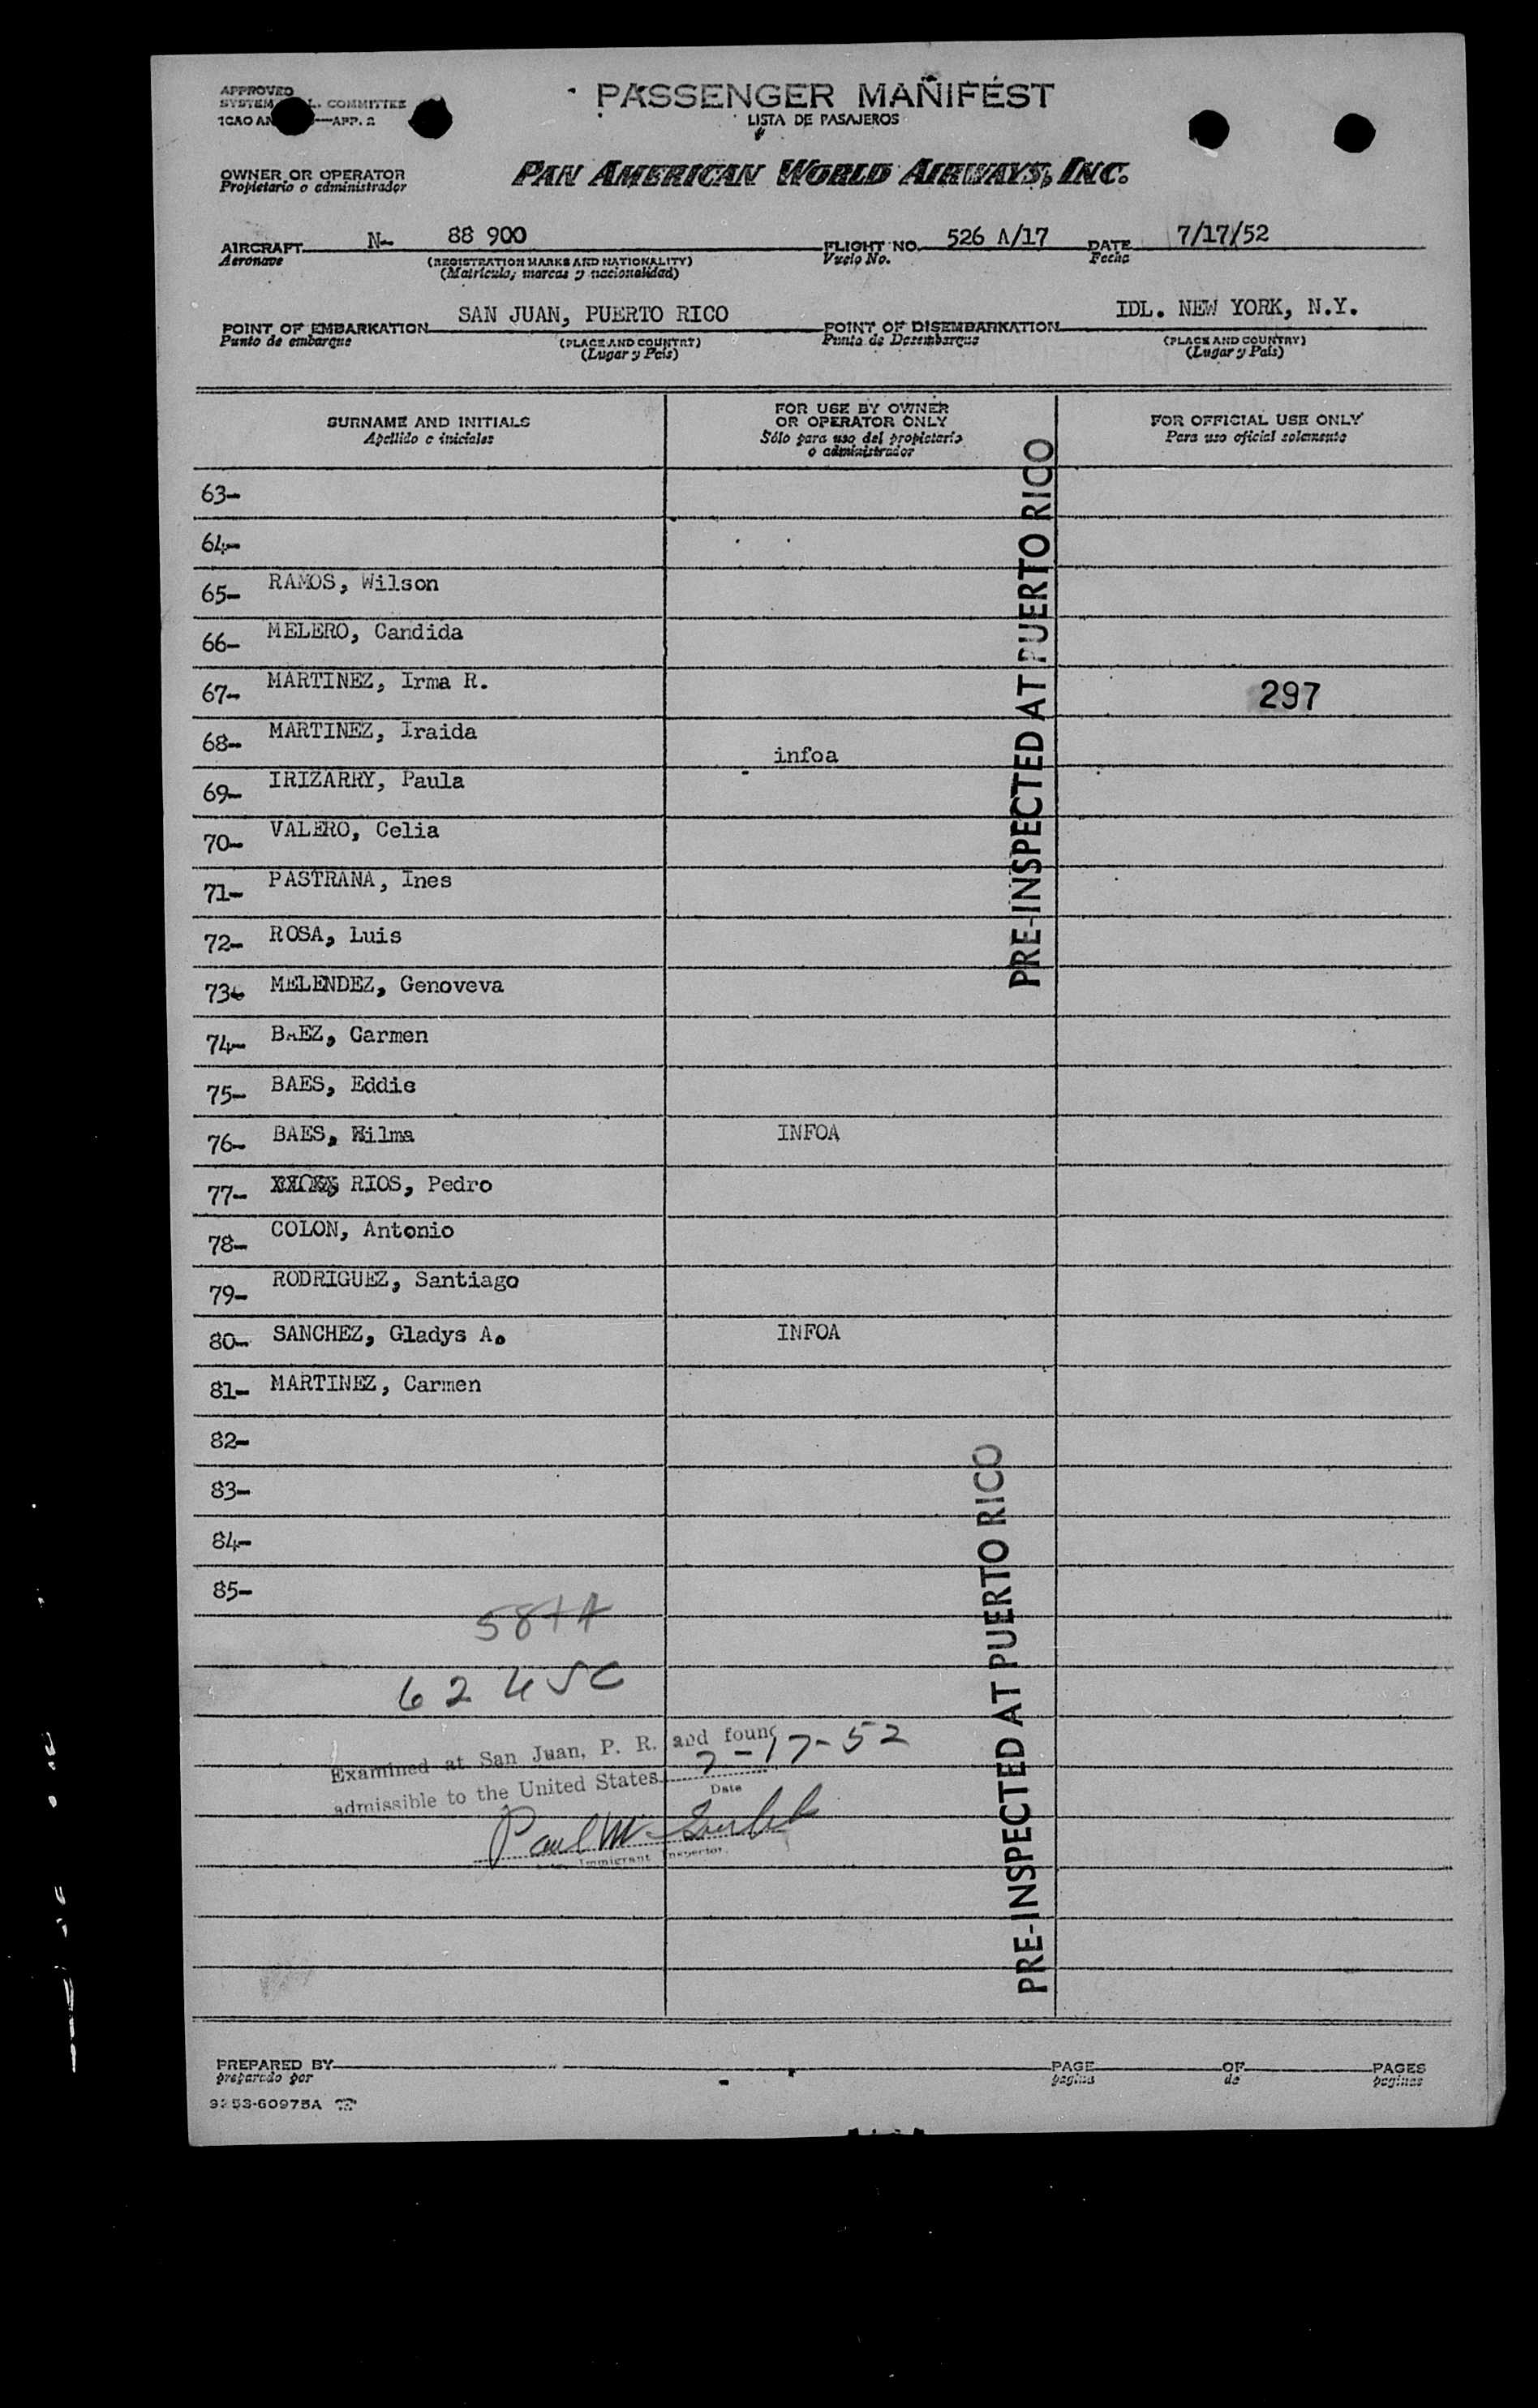 APPROVED
SYSTEM L. COMMITTEE
ICAO AN —APP. 2
PASSENGER MANIFEST
LISTA DE PASAJEROS
OWNER OR OPERATOR
Propietario o administrador
PAN AMERICAN WORLD AIRWAYS, INC.
AIRCRAFT N- 88 900 FLIGHT NO. 526 A/17 DATE 7/17/52
Aeronave (REGISTRATION MARKS AND NATIONALITY) Vuelo No. Fecha
(Matrícula, marcas y nacionalidad)
POINT OF EMBARKATION SAN JUAN, PUERTO RICO POINT OF DISEMBARKATION IDL. NEW YORK, N.Y.
Punto de embarque (PLACE AND COUNTRY) Punto de Desembarque (PLACE AND COUNTRY)
(Lugar y País) (Lugar y País)
SURNAME AND INITIALS
Apellido e iniciales
FOR USE BY OWNER
OR OPERATOR ONLY
Sólo para uso del propietario
o administrador
FOR OFFICIAL USE ONLY
Para uso oficial solamente
63-
64-
65- RAMOS, Wilson
66- MELERO, Candida
67- MARTINEZ, Irma R. 297
68- MARTINEZ, Iraida infoa
69- IRIZARRY, Paula
70- VALERO, Celia
71- PASTRANA, Ines
72- ROSA, Luis
73- MELENDEZ, Genoveva
74- BAEZ, Carmen
75- BAES, Eddie
76- BAES, Wilma INFOA
77- RIOS, Pedro
78- COLON, Antonio
79- RODRIGUEZ, Santiago
80- SANCHEZ, Gladys A. INFOA
81- MARTINEZ, Carmen
82-
83-
84-
85-
PRE-INSPECTED AT PUERTO RICO
PRE-INSPECTED AT PUERTO RICO
58+4
62 USC
Examined at San Juan, P. R. and found
admissible to the United States 7-17-52
Date
Paul M
Immigrant Inspector.
PREPARED BY PAGE OF PAGES
preparado por pagina de paginas
9253-60975A